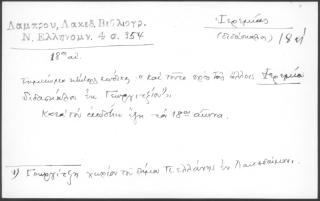 Λαμπρου, Λακεδ. Βιβλιογρ.
Ν. Ελληνομν. 4 σ. 354
Ιερεμίας
(διδάσκαλος) 18 αἰ
18ος αἰ.
Σημείωμα κώδικος « καὶ τοῦτο σὺν τοῖς ἄλλοις Ιερεμίου
διδασκάλου ἐκ Γεωργιτζίου¹⁾»
Κατὰ τὸν ἐκδότην ἔζη τὸν 18ον αἰῶνα.
1) Γεωργίτζι χωρίον τοῦ δήμου Πελλάνης ἐν Λακεδαίμονι.